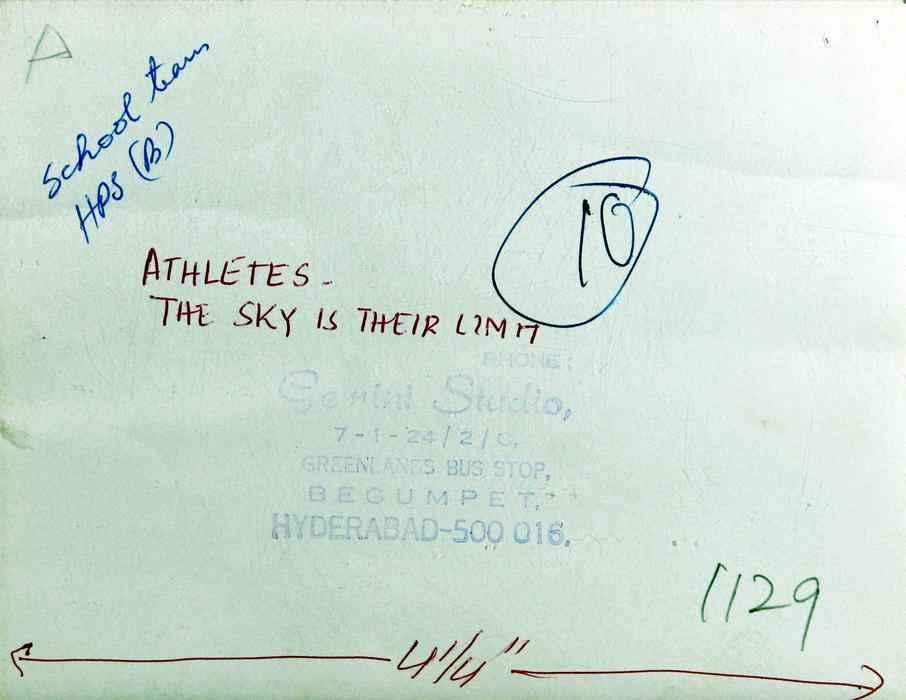 A
School team
HPS (B)
10
ATHLETES -
THE SKY IS THEIR LIMIT
PHONE:
Gemini Studio,
7-1-24/2/C,
GREENLANES BUS STOP,
BEGUMPET,
HYDERABAD-500 016.
1129
4 1/4"